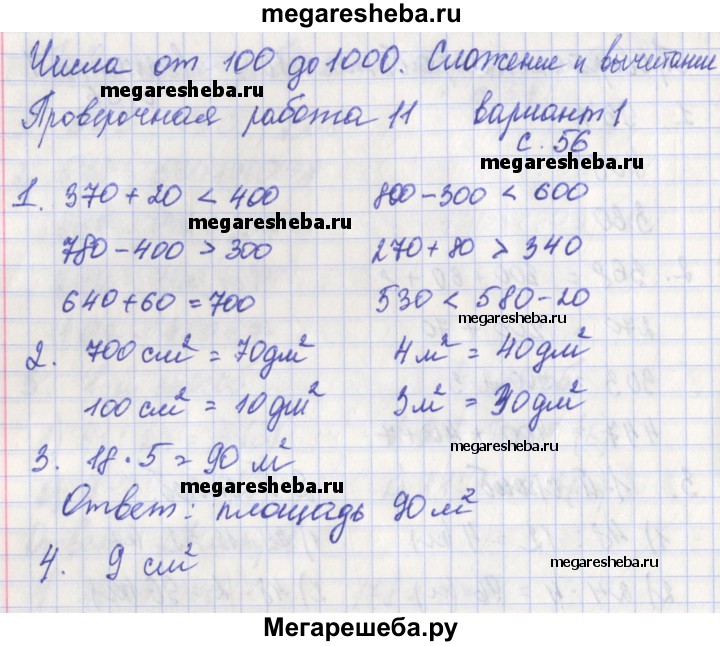 megaresheba.ru
Числа от 100 до 1000. Сложение и вычитание
megaresheba.ru
Проверочная работа 11 вариант 1
с. 56
megaresheba.ru
1. 370 + 20 < 400 800 - 300 < 600
megaresheba.ru
780 - 400 > 300 270 + 80 > 340
640 + 60 = 700 530 < 580 - 20
megaresheba.ru
2. 700 см² = 70 дм² 4 м² = 40 дм²
100 см² = 10 дм² 3 м² = 30 дм²
megaresheba.ru
3. 18 · 5 = 90 м²
megaresheba.ru
Ответ: площадь 90 м²
4. 9 см²
megaresheba.ru
Мегарешеба.ру